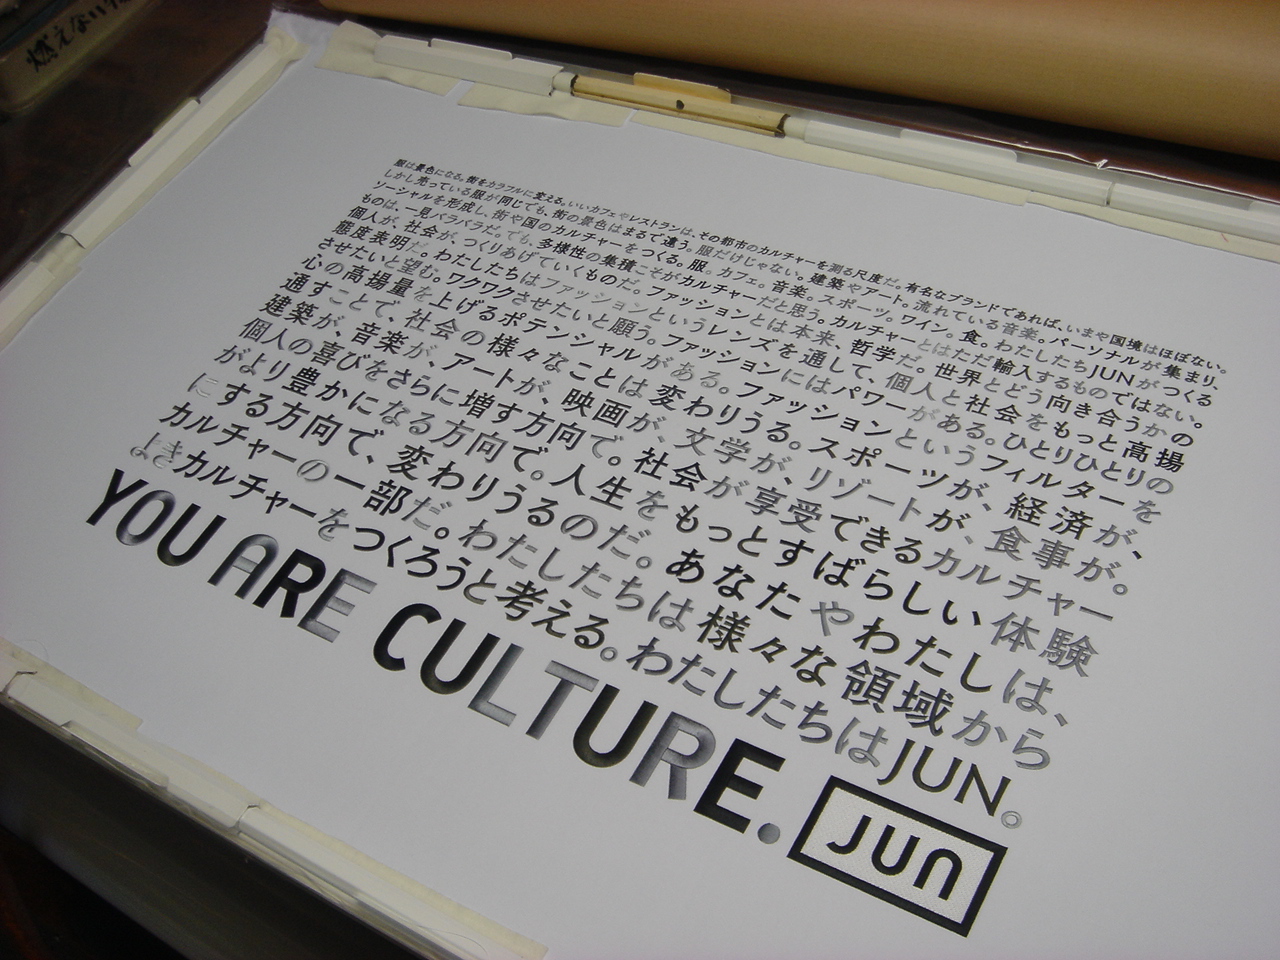 燃えない
服は景色になる。街をカラフルに変える。いいカフェやレストランは、その都市のカルチャーを測る尺度だ。有名なブランドであれば、いまや国境はほぼない。
しかし売っている服が同じでも、街の景色はまるで違う。服だけじゃない。建築やアート。流れている音楽。パーソナルが集まり、
ソーシャルを形成し、街や国のカルチャーをつくる。服。カフェ。音楽。スポーツ。ワイン。食。わたしたちJUNがつくる
ものは、一見バラバラだ。でも、多様性の集積こそがカルチャーだと思う。カルチャーとはただ輸入するものではない。
個人が、社会が、つくりあげていくものだ。ファッションとは本来、哲学だ。世界とどう向き合うかの
態度表明だ。わたしたちはファッションというレンズを通して、個人と社会をもっと高揚
させたいと望む。ワクワクさせたいと願う。ファッションにはパワーがある。ひとりひとりの
心の高揚量を上げるポテンシャルがある。ファッションというフィルターを
通すことで、社会の様々なことは変わりうる。スポーツが、経済が、
建築が、音楽が、アートが、映画が、文学が、リゾートが、食事が。
個人の喜びをさらに増す方向で。社会が享受できるカルチャー
がより豊かになる方向で。人生をもっとすばらしい体験
にする方向で、変わりうるのだ。あなたやわたしは、
カルチャーの一部だ。わたしたちは様々な領域から
よきカルチャーをつくろうと考える。わたしたちはJUN。
YOU ARE CULTURE.
JUN